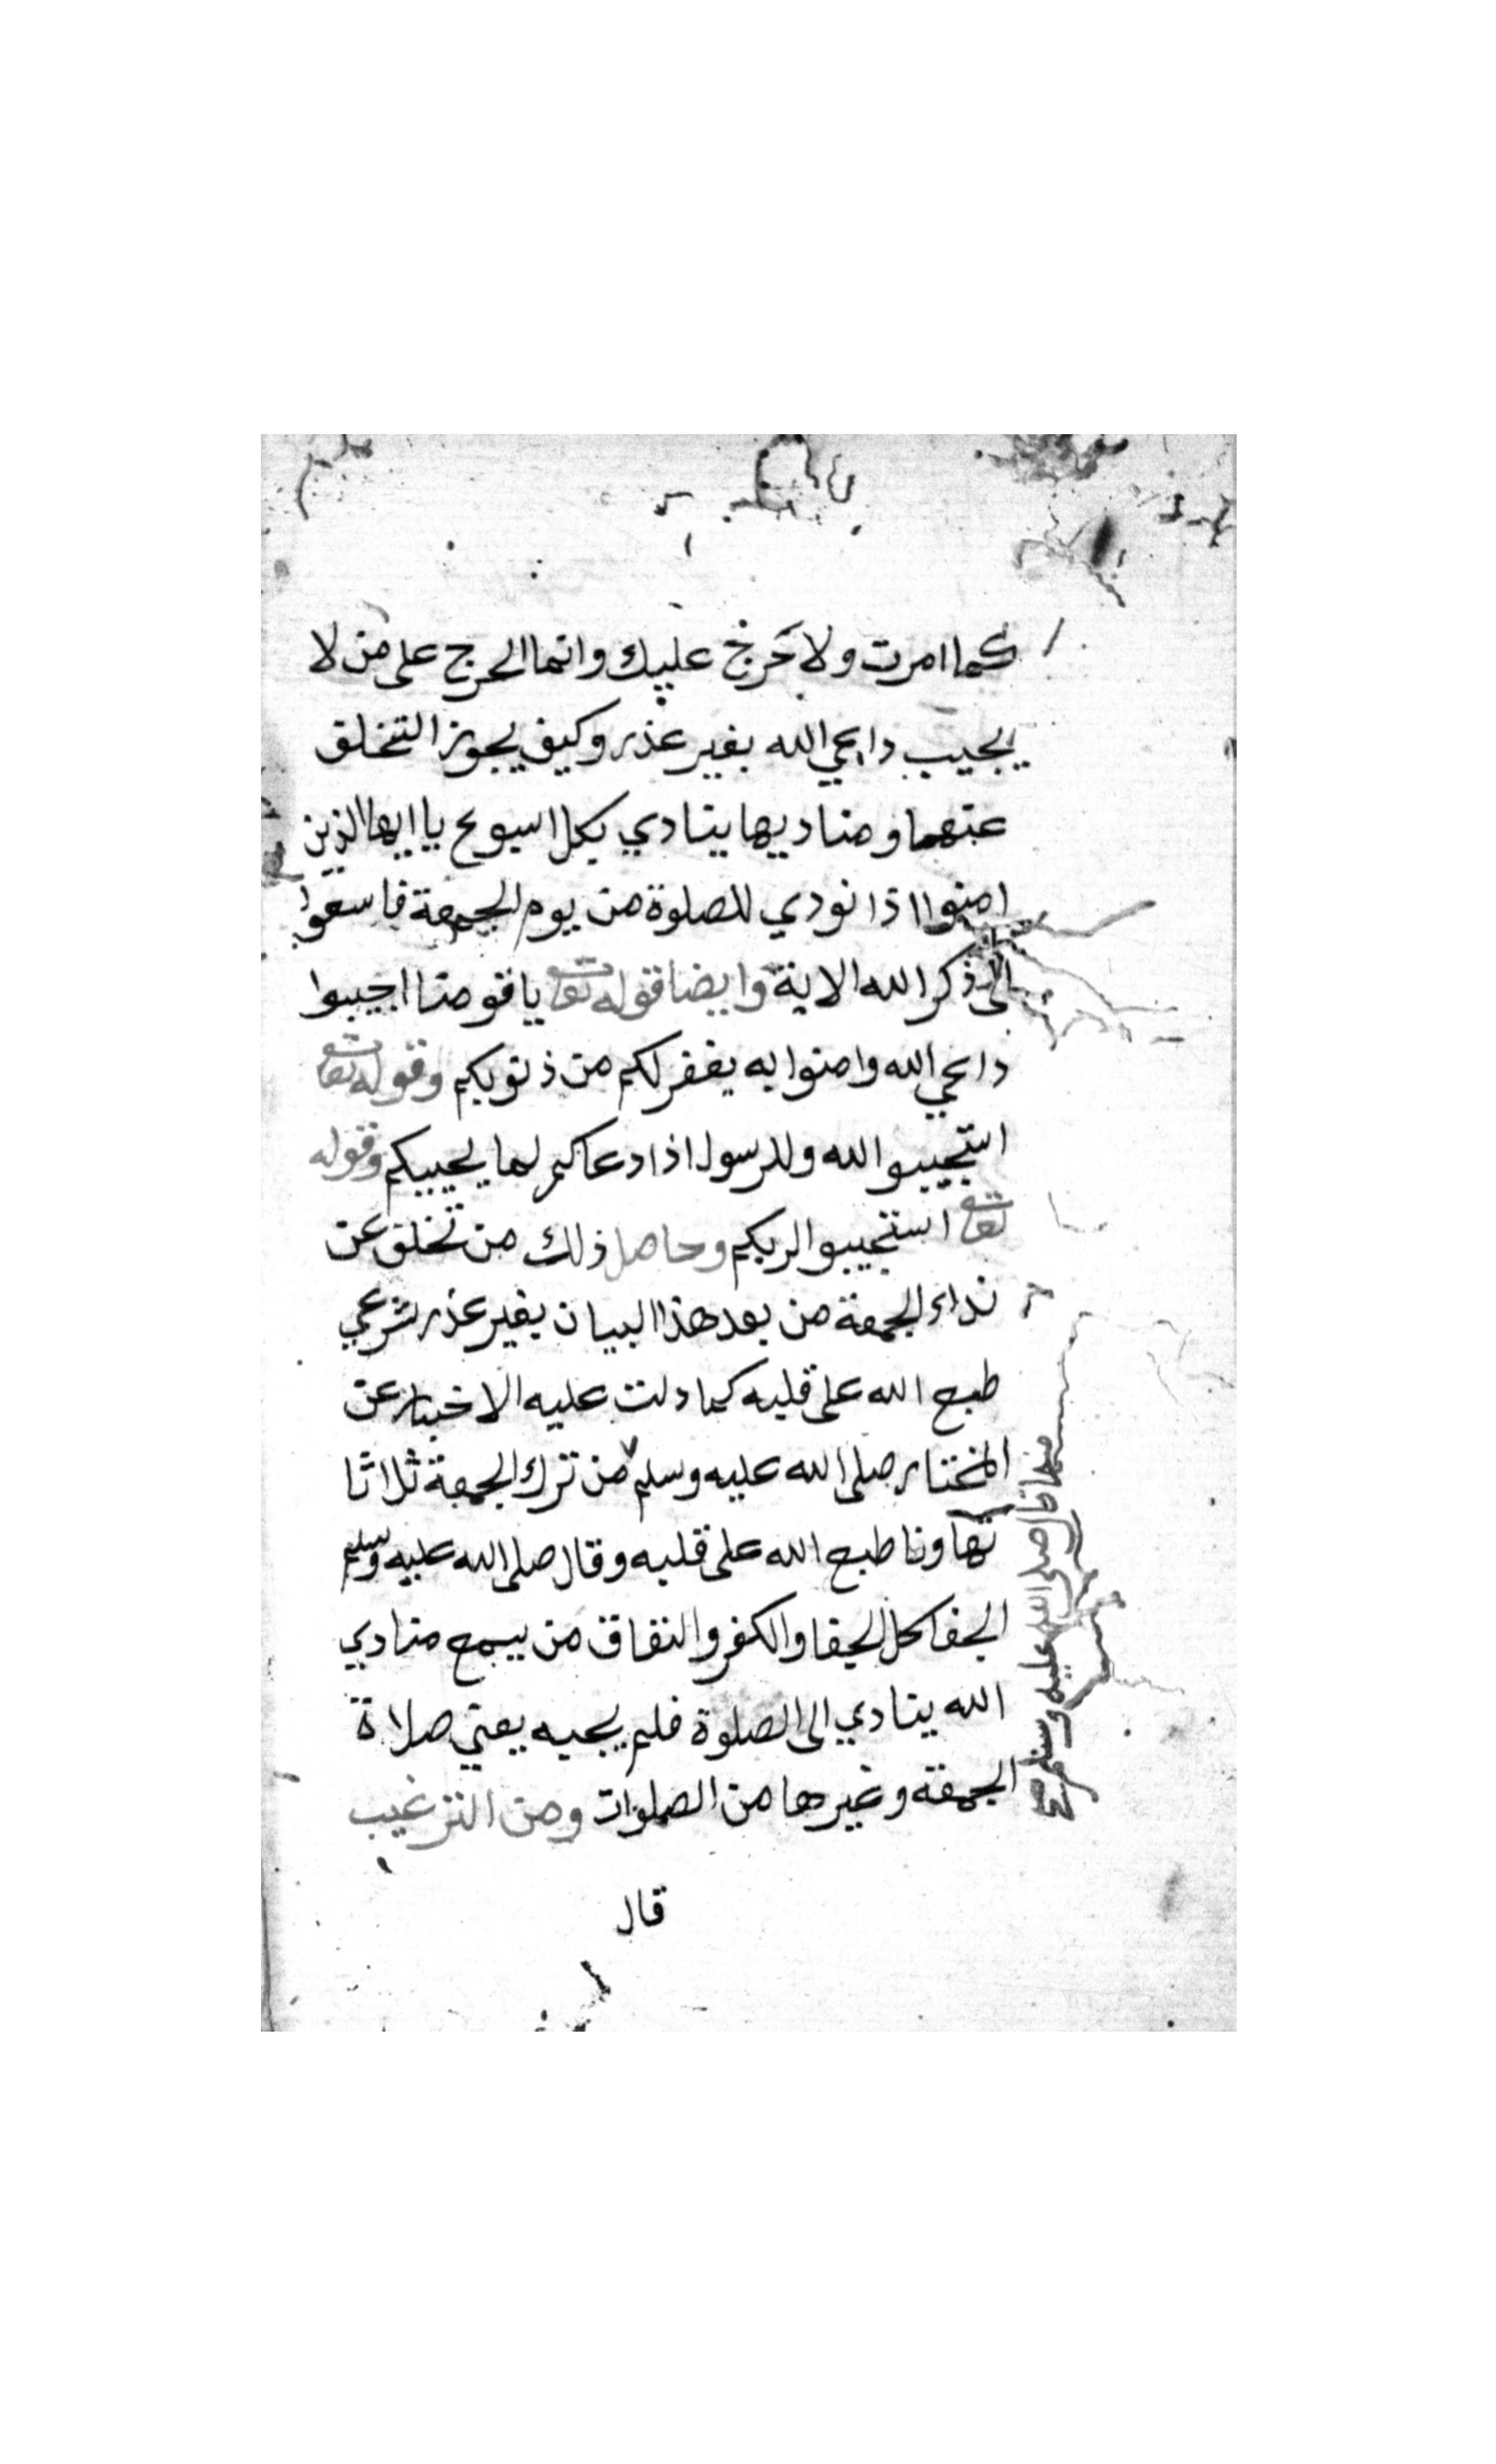 كما امرت ولا تحرج عليك وانما الحرج على من لا
يجيب داعي الله بغير عذر وكيف يجوز التخلف
عنهما ومناديها ينادي بكل اسبوع يا ايها الذين
امنوا اذا نودي للصلوة من يوم الجمعة فاسعوا
الى ذكر الله الاية وايضا قوله تعا يا قومنا اجيبوا
داعي الله وامنوا به يغفر لكم من ذنوبكم وقوله تعا
استجيبوا لله وللرسول اذا دعاكم لما يحييكم وقوله
تعا استجيبوا لربكم وحاصل ذلك من تخلف عن
نداء الجمعة من بعد هذا البيان بغير عذر شرعي
طبع الله على قلبه كما دلت عليه الاخبار عن
المختار صلى الله عليه وسلم من ترك الجمعة ثلاثا
تهاونا طبع الله على قلبه وقال صلى الله عليه وسلم
الجفا كل الجفا والكفر والنفاق من يسمع منادي
الله ينادي الى الصلوة فلم يجيبه يعني صلاة
الجمعة وغيرها من الصلوات ومن الترغيب
قال
منها قال صلى الله عليه وسلم صح